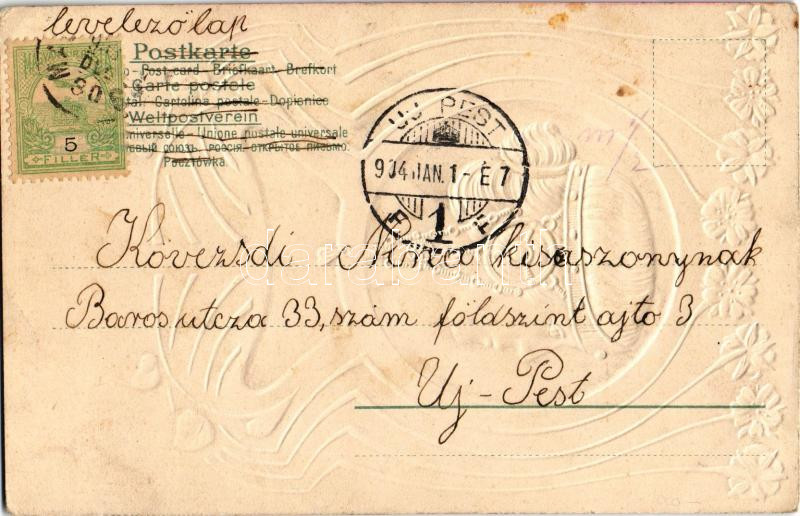 levelezőlap
Postkarte
Post card - Briefkaart - Brefkort
Carte postale
Cartolina postale - Dopisnice
Weltpostverein
Unione postale universale
РОСІЯ. ОТКРЫТОЕ ПИСЬМО.
Pocztówka
5
FILLER
UJ PEST
904 JAN. 1 - E 7
1
Kövezsdi Alma kisaszonynak
Baros utcza 33, szám földszint ajto 3
Uj-Pest